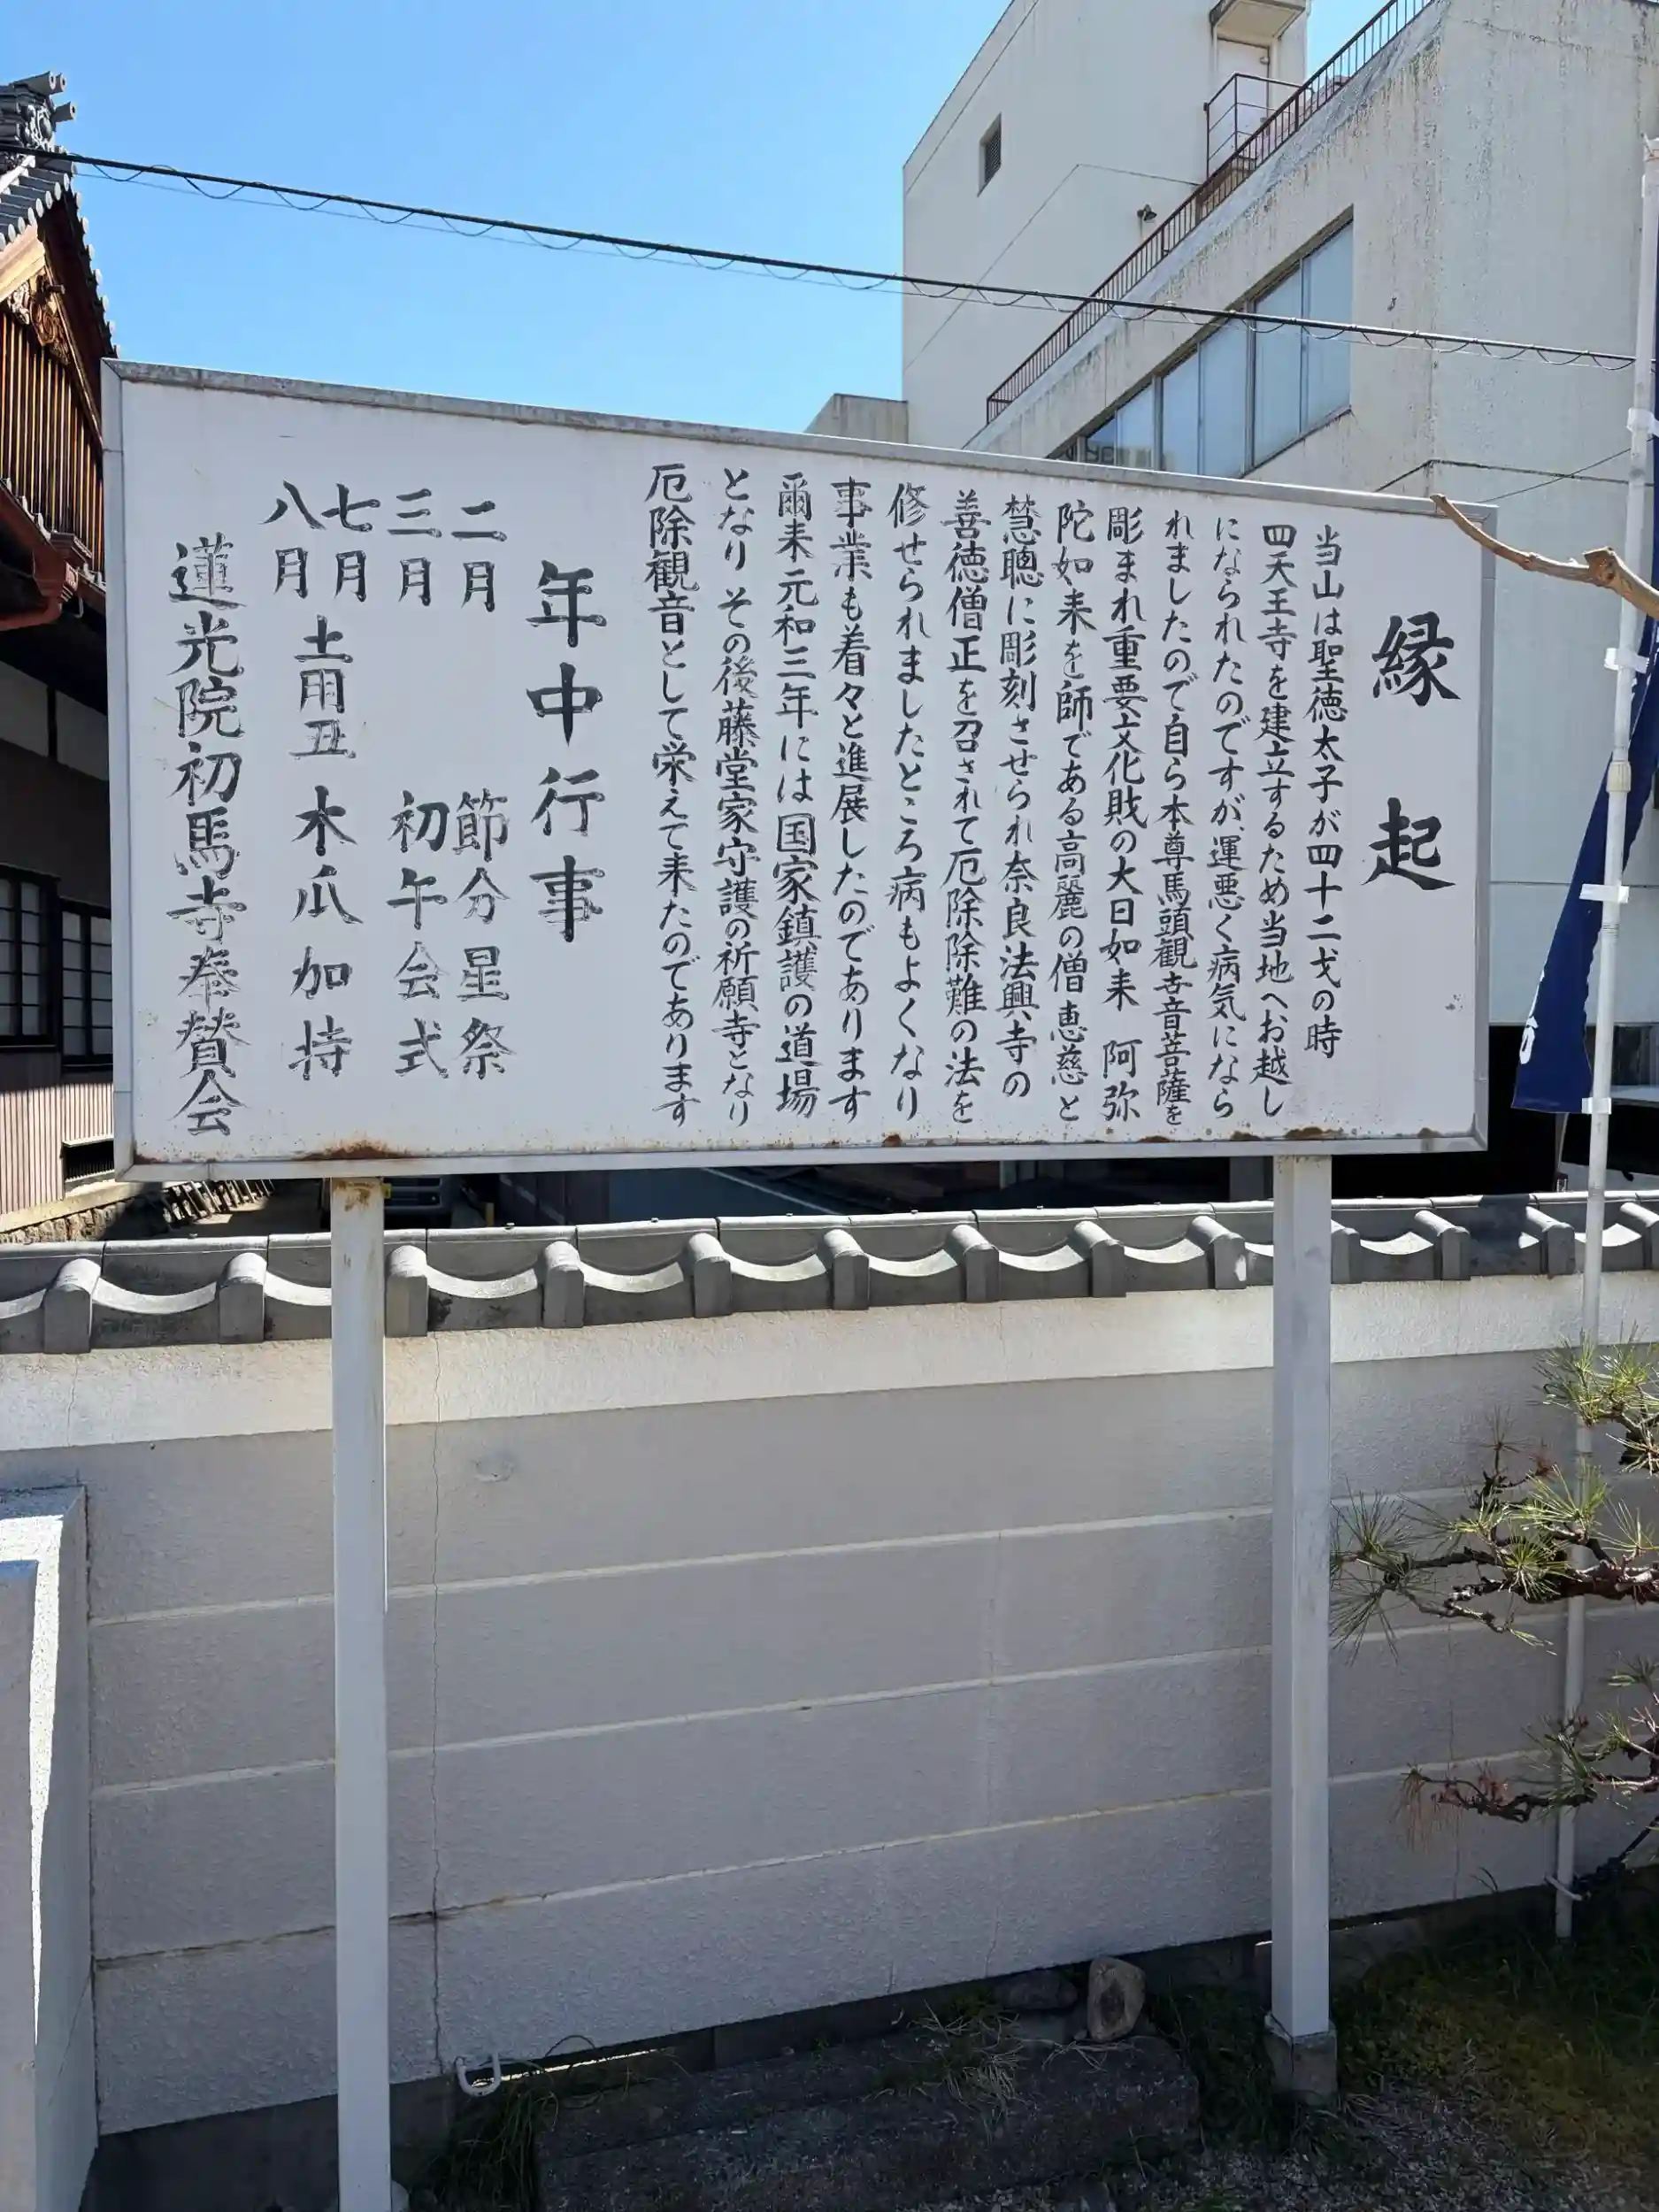 縁起
当山は聖徳太子が四十二才の時
四天王寺を建立するため当地へお越し
になられたのですが、運悪く病気になら
れましたので自ら本尊馬頭観世音菩薩を
彫まれ重要文化財の大日如来 阿弥
陀如来を師である高麗の僧恵慈と
慧聰に彫刻させられ奈良法興寺の
善徳僧正を召されて厄除除難の法を
修せられましたところ病もよくなり
事業も着々と進展したのであります
爾来元和三年には国家鎮護の道場
となり その後藤堂家守護の祈願寺となり
厄除観音として栄えて来たのであります
年中行事
二月 節分星祭
三月 初午会式
七月
八月 土用丑 木瓜加持
蓮光院初馬寺奉賛会